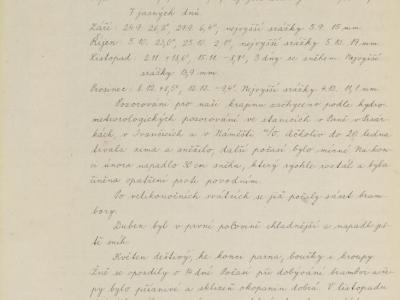 7 jasných dnů.
Září: 24.9. 26,5°, 29.9. 6,4°, nejvyšší srážky 5.9. 15 mm.
Říjen: 5.10. 23,0°, 25.10. 2,0°, nejvyšší srážky 5.10. 19 mm.
Listopad: 2.11. +18,6°, 15.11. -8,8°, 3 dny se sněhem. Nejvyšší
srážky 13,9 mm.
Prosinec: 6.12. +8,5°, 12.12. -9,4°. Nejvyšší srážky 4.12. 10,1 mm.
Pozorování pro naši krajinu zachyceno podle hydro-
meteorologických pozorování ve stanicích v Brně v
kách, v Ivančicích a v Náměšti n/O. Ačkoliv do 20. ledna
trvala zima a sněžilo, další počasí bylo mírné. Na kon-
ci února napadlo 30 cm sněhu, který rychle roztál a byla
učiněna opatření proti povodním.
Po velikonočních svátcích se již počaly sázet bram-
bory.
Duben byl v první polovině chladnější a napadl je-
ště sníh.
Květen deštivý, ke konci parna, bouřky i kroupy.
Žně se opozdily o 14 dní. Počasí při dobývání brambor a ře-
py bylo příznivé a sklizeň okopanin dobrá. V listopadu